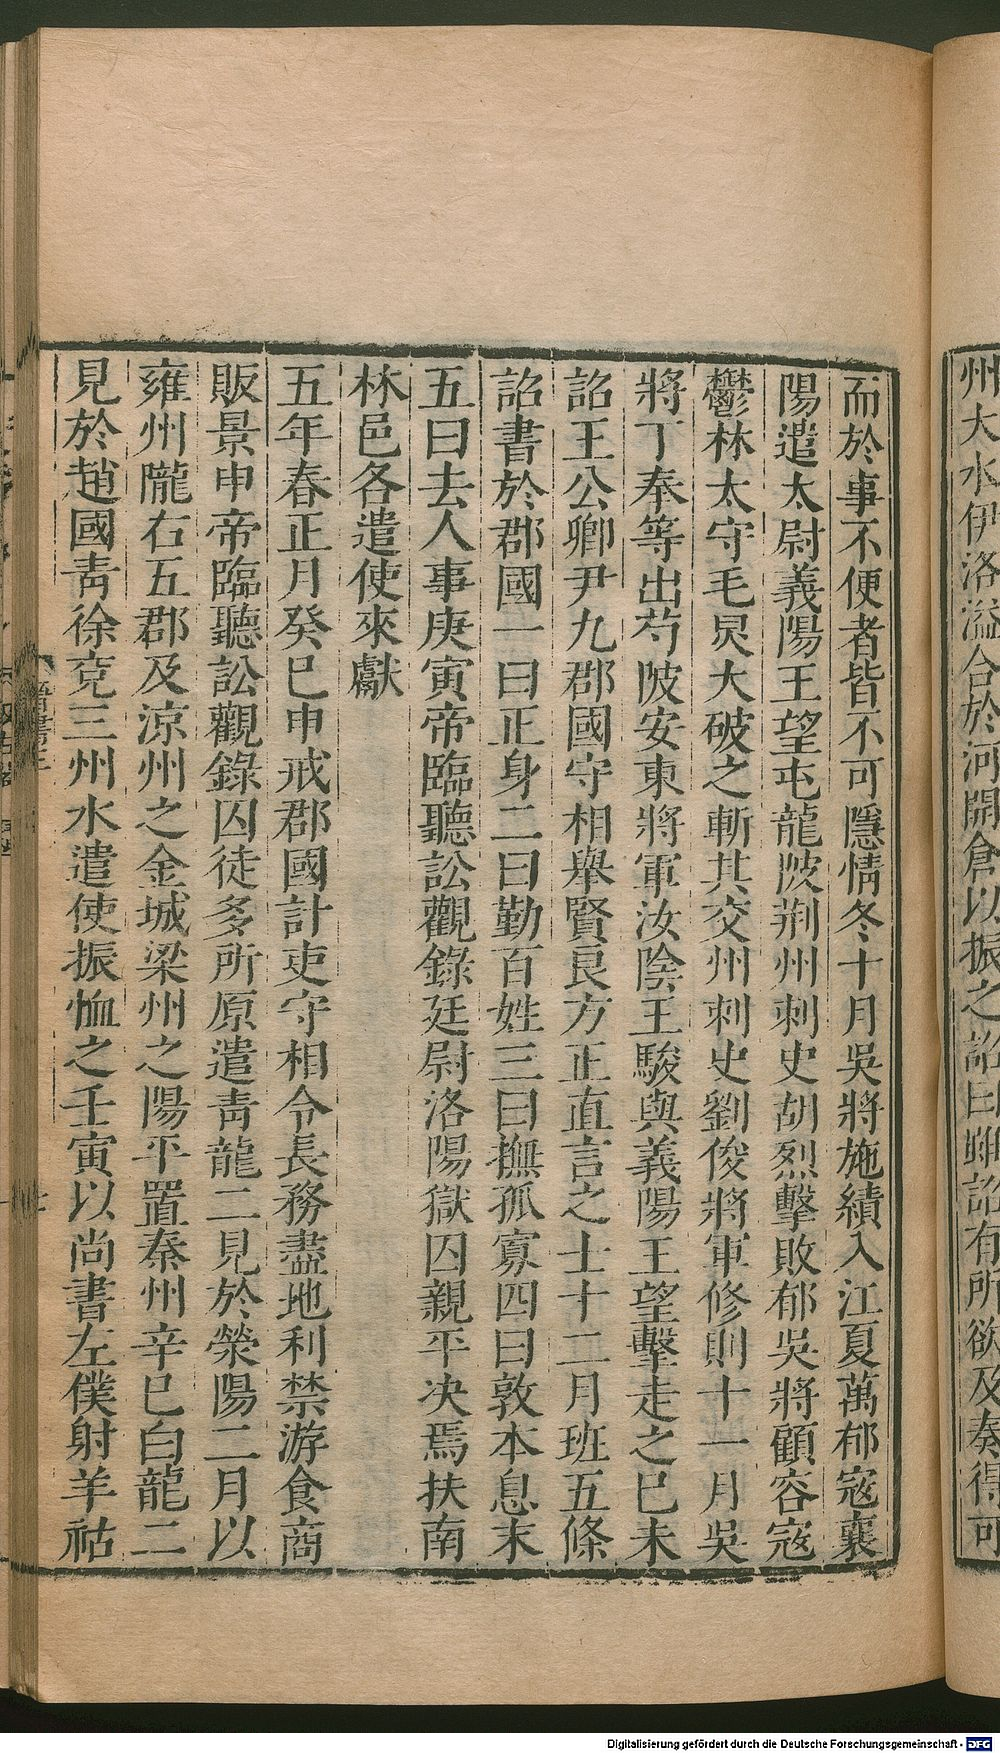 州大水伊洛溢合於河開倉以振之詔曰雖詔有所欲及奏得可
而於事不便者皆不可隱情冬十月吳將施績入江夏萬郁寇襄
陽遣太尉義陽王望屯龍陂荊州刺史胡烈擊敗郁吳將顧容寇
鬱林太守毛炅大破之斬其交州刺史劉俊將軍修則十一月吳
將丁奉等出芍陂安東將軍汝陰王駿與義陽王望擊走之己未
詔王公卿尹九郡國守相舉賢良方正直言之士十二月班五條
詔書於郡國一曰正身二曰勤百姓三曰撫孤寡四曰敦本息末
五曰去人事庚寅帝臨聽訟觀錄廷尉洛陽獄囚親平決焉扶南
林邑各遣使來獻
五年春正月癸巳申戒郡國計吏守相令長務盡地利禁游食商
販景申帝臨聽訟觀錄囚徒多所原遣青龍二見於滎陽二月以
雍州隴右五郡及涼州之金城梁州之陽平置秦州辛巳白龍二
見於趙國青徐兗三州水遣使振恤之壬寅以尚書左僕射羊祜
Digitalisierung gefördert durch die Deutsche Forschungsgemeinschaft - DFG